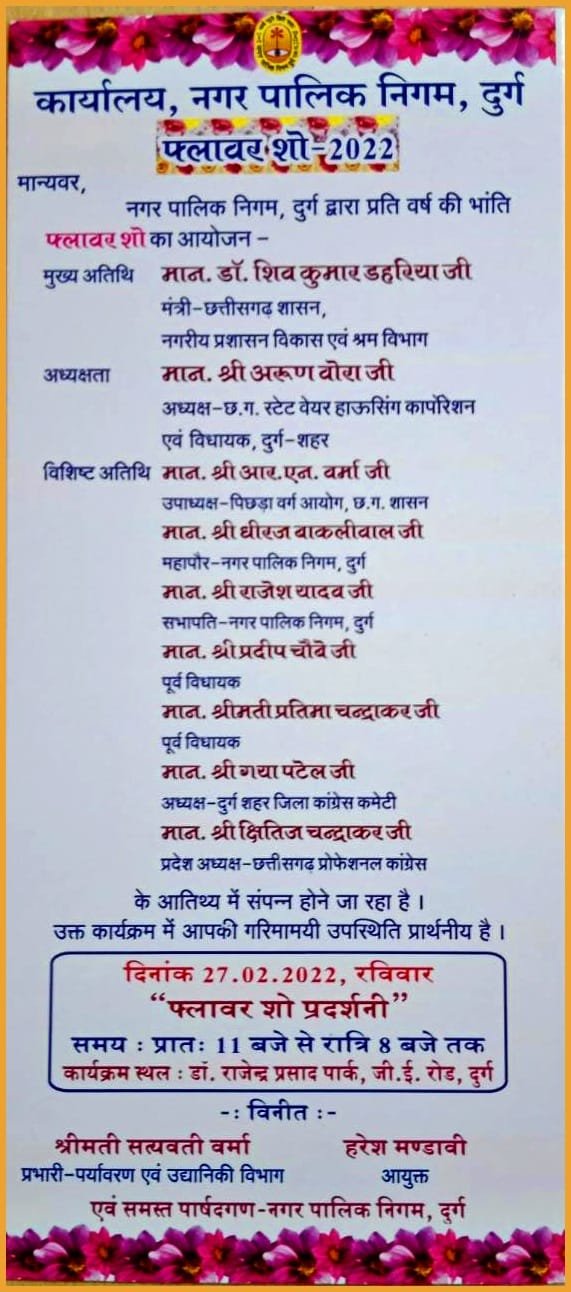 कार्यालय, नगर पालिक निगम, दुर्ग
फ्लावर शो-2022
मान्यवर,
नगर पालिक निगम, दुर्ग द्वारा प्रति वर्ष की भांति
फ्लावर शो का आयोजन -
मुख्य अतिथि मान. डॉ. शिव कुमार डहरिया जी
मंत्री-छत्तीसगढ़ शासन,
नगरीय प्रशासन विकास एवं श्रम विभाग
अध्यक्षता मान. श्री अरूण वोरा जी
अध्यक्ष-छ.ग. स्टेट वेयर हाऊसिंग कार्पोरेशन
एवं विधायक, दुर्ग-शहर
विशिष्ट अतिथि मान. श्री आर.एन. वर्मा जी
उपाध्यक्ष-पिछड़ा वर्ग आयोग, छ.ग. शासन
मान. श्री धीरज बाकलीवाल जी
महापौर-नगर पालिक निगम, दुर्ग
मान. श्री राजेश यादव जी
सभापति-नगर पालिक निगम, दुर्ग
मान. श्री प्रदीप चौबे जी
पूर्व विधायक
मान. श्रीमती प्रतिमा चन्द्राकर जी
पूर्व विधायक
मान. श्री गया पटेल जी
अध्यक्ष-दुर्ग शहर जिला कांग्रेस कमेटी
मान. श्री क्षितिज चन्द्राकर जी
प्रदेश अध्यक्ष-छत्तीसगढ़ प्रोफेशनल कांग्रेस
के आतिथ्य में संपन्न होने जा रहा है ।
उक्त कार्यक्रम में आपकी गरिमामयी उपस्थिति प्रार्थनीय है ।
दिनांक 27.02.2022, रविवार
“फ्लावर शो प्रदर्शनी”
समय : प्रातः 11 बजे से रात्रि 8 बजे तक
कार्यक्रम स्थल : डॉ. राजेन्द्र प्रसाद पार्क, जी.ई. रोड, दुर्ग
-: विनीत :-
श्रीमती सत्यवती वर्मा हरेश मण्डावी
प्रभारी-पर्यावरण एवं उद्यानिकी विभाग आयुक्त
एवं समस्त पार्षदगण-नगर पालिक निगम, दुर्ग